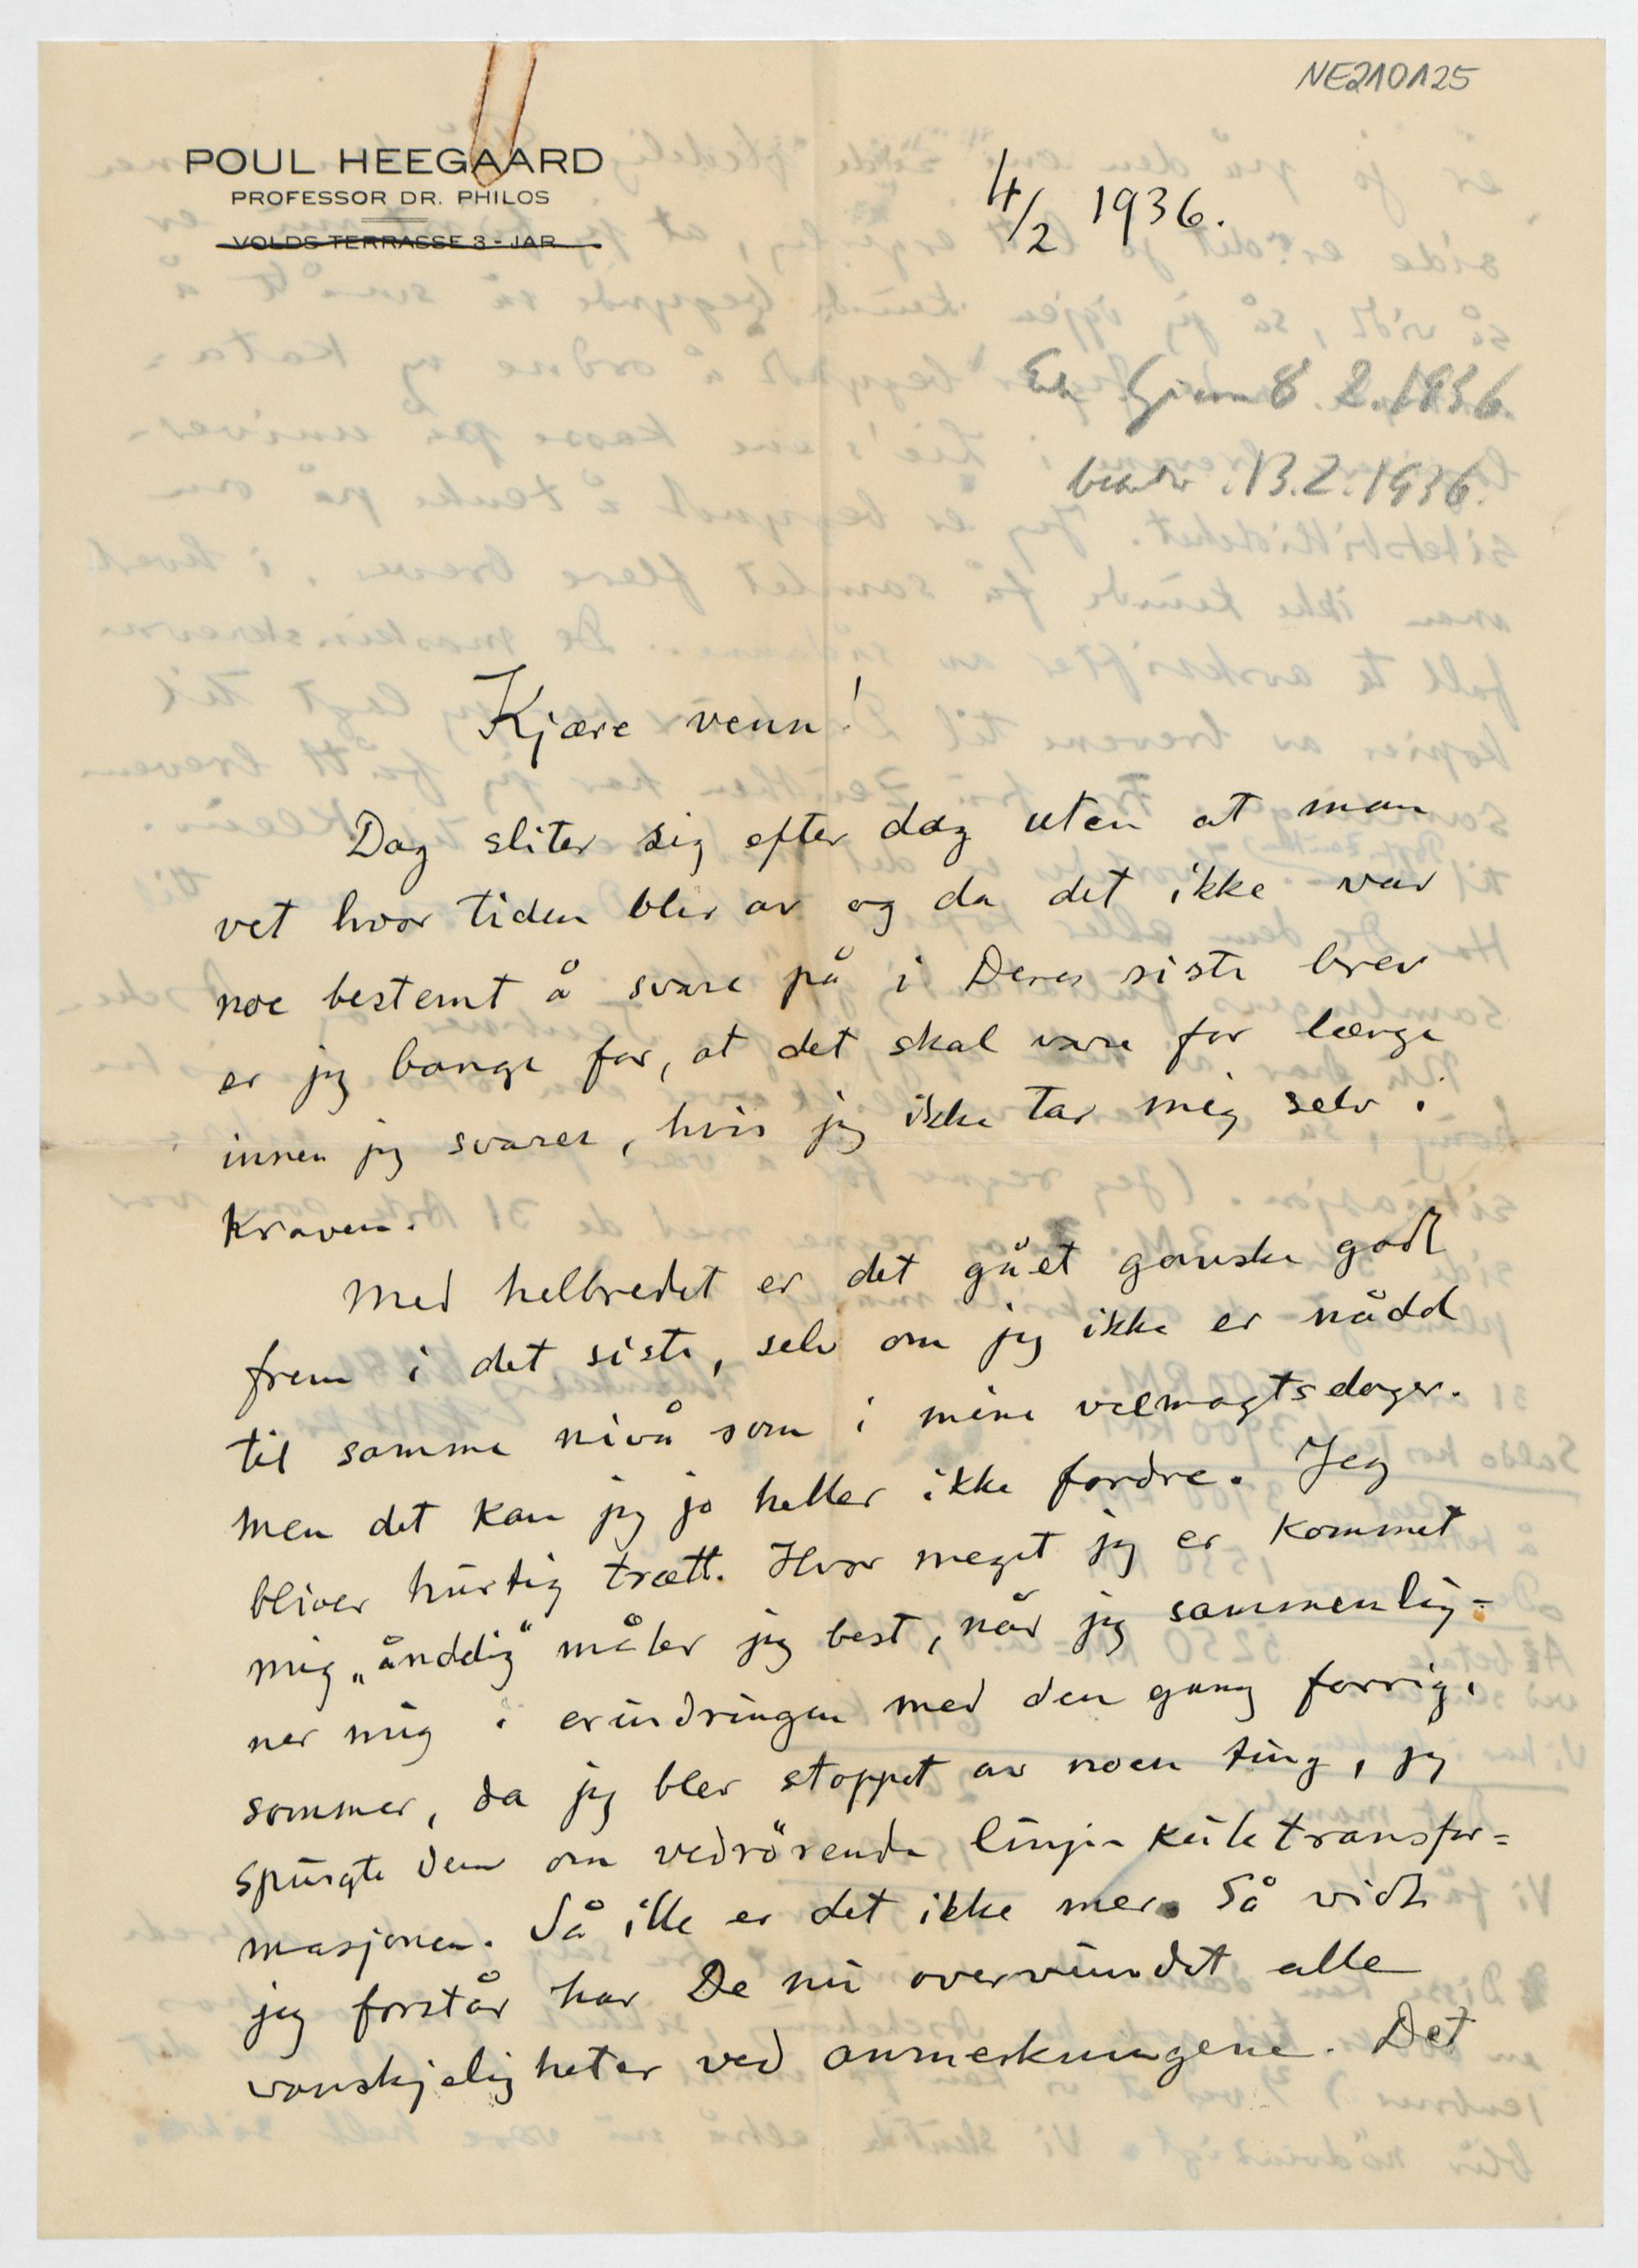 NE210125
POUL HEEGAARD
PROFESSOR DR. PHILOS
VOLDS TERRASSE 3 - JAR
4/2 1936.
8.2.1936.
13.2.1936.
Kjære venn!
Dag sliter sig efter dag uten at man
vet hvor tiden blir av og da det ikke var
noe bestemt å svare på i Deres siste brev
er jeg bange for, at det skal vare for længe
innen jeg svarer, hvis jeg ikke tar mig selv i
kraven.
Med helbredet er det gået ganske godt
frem i det siste, selv om jeg ikke er nådd
til samme nivå som i mine velmagtsdager.
Men det kan jeg jo heller ikke fordre. Jeg
bliver hurtig trætt. Hvor meget jeg er kommet
mig „åndelig“ måler jeg best, når jeg sammenlig=
ner mig i erindringen med den gang forrige
sommer, da jeg blev stoppet av noen ting, jeg
spurgte Dem om vedrörende linje kule transfor=
masjonen. Så ille er det ikke mer. Så vidt
jeg forstår har De nu overvundet alle
vanskjeligheter ved anmerkningene. Det